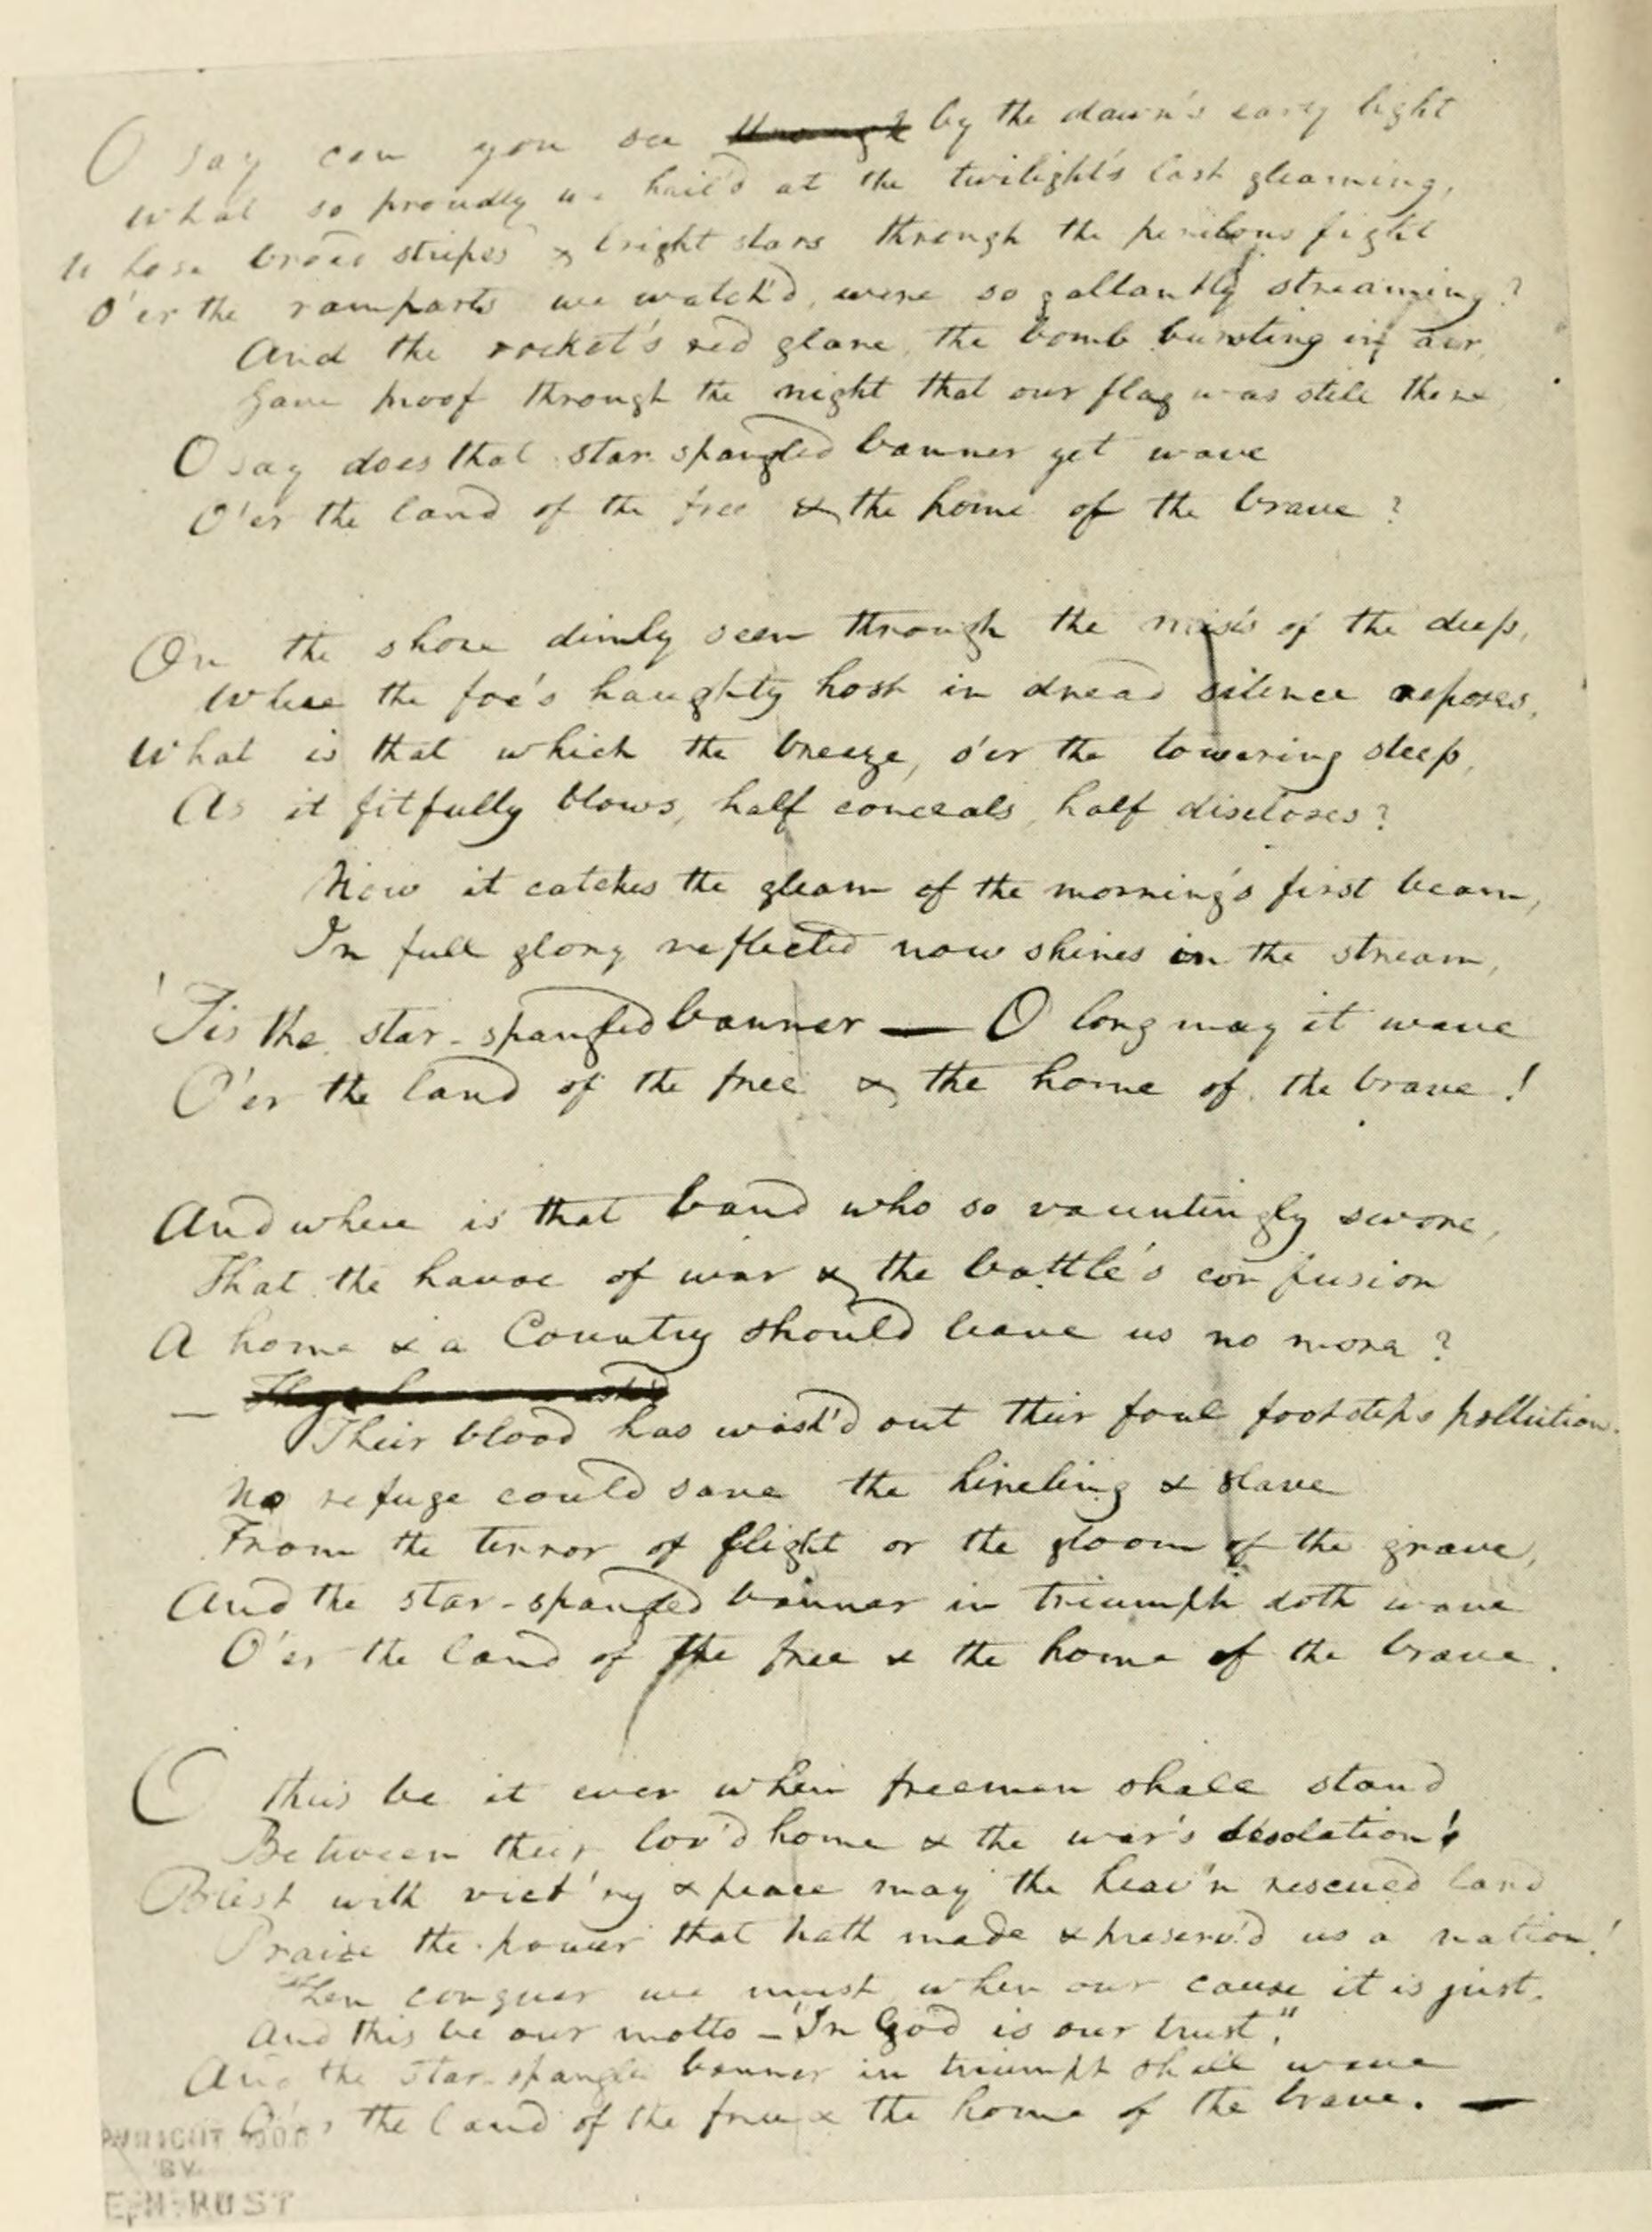 O say can you see through by the dawn's early light
What so proudly we hail'd at the twilight's last gleaming,
Whose broad stripes & bright stars through the perilous fight
O'er the ramparts we watch'd, were so gallantly streaming?
And the rocket's red glare, the bomb bursting in air,
Gave proof through the night that our flag was still there
O say does that star spangled banner yet wave
O'er the land of the free & the home of the brave?
On the shore dimly seen through the mists of the deep,
Where the foe's haughty host in dread silence reposes,
What is that which the breeze, o'er the towering steep,
As it fitfully blows, half conceals, half discloses?
Now it catches the gleam of the morning's first beam,
In full glory reflected now shines in the stream,
'Tis the star-spangled banner — O long may it wave
O'er the land of the free & the home of the brave!
And where is that band who so vauntingly swore,
That the havoc of war & the battle's confusion
A home & a Country should leave us no more?
—
Their blood has wash'd out their foul footsteps pollution.
No refuge could save the hireling & slave
From the terror of flight or the gloom of the grave,
And the star-spangled banner in triumph doth wave
O'er the land of the free & the home of the brave.
O thus be it ever when freemen shall stand
Between their lov'd home & the war's desolation!
Blest with vict'ry & peace may the heav'n rescued land
Praise the power that hath made & preserv'd us a nation!
Then conquer we must, when our cause it is just,
And this be our motto — "In God is our trust,"
And the star-spangled banner in triumph shall wave
O'er the land of the free & the home of the brave. —
BY
E. H. RUST